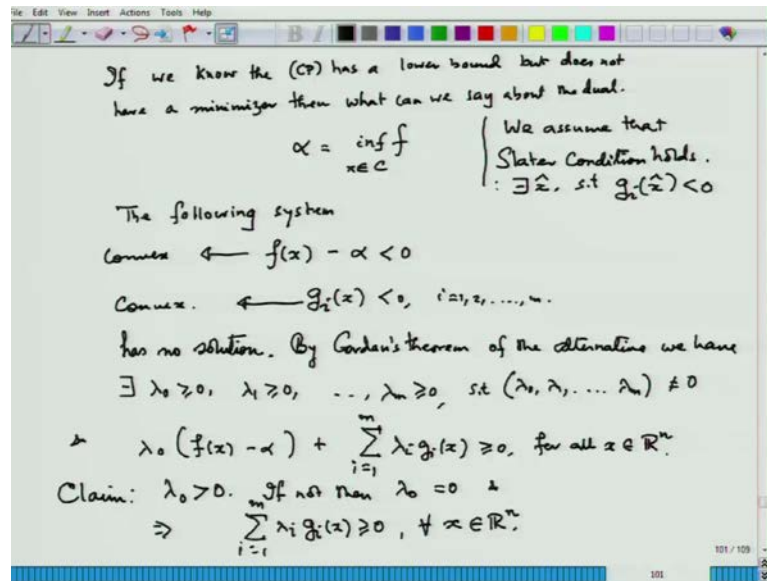 File Edit View Insert Actions Tools Help
B I
If we know the (CP) has a lower bound but does not
have a minimizer then what can we say about the dual.
α = inf f
x∈C
We assume that
Slater Condition holds.
: ∃ x̂, s.t g_i(x̂) < 0
The following system
Convex ← f(x) - α < 0
Convex. ← g_i(x) < 0, i=1,2,....,m.
has no solution. By Gordan's theorem of the alternative we have
∃ λ_0 ≥ 0, λ_1 ≥ 0, ..., λ_m ≥ 0, s.t (λ_0, λ_1, .... λ_m) ≠ 0
& λ_0 (f(x) - α) + ∑_{i=1}^{m} λ_i g_i(x) ≥ 0, for all x ∈ ℝ^n.
Claim: λ_0 > 0. If not then λ_0 = 0 &
⇒ ∑_{i=1}^{m} λ_i g_i(x) ≥ 0, ∀ x ∈ ℝ^n.
101 / 109
101